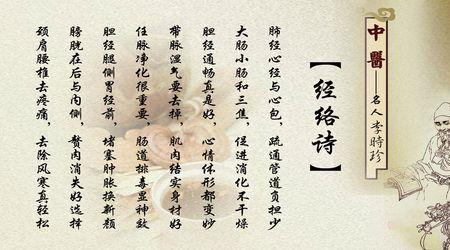 中醫——名人李時珍
【经络诗】
肺经心经与心包，疏通管道负担少
大肠小肠和三焦，促进消化不干燥
胆经通畅真是好，心情体形都变妙
带脉湿气要去掉，肌肉结实身材好
任脉净化很重要，肠道排毒显神效
胆经腿侧胃经前，堵塞肿胀换新颜
膀胱在后与内侧，赘肉消失好选择
颈肩腰椎去疼痛，去除风寒真轻松